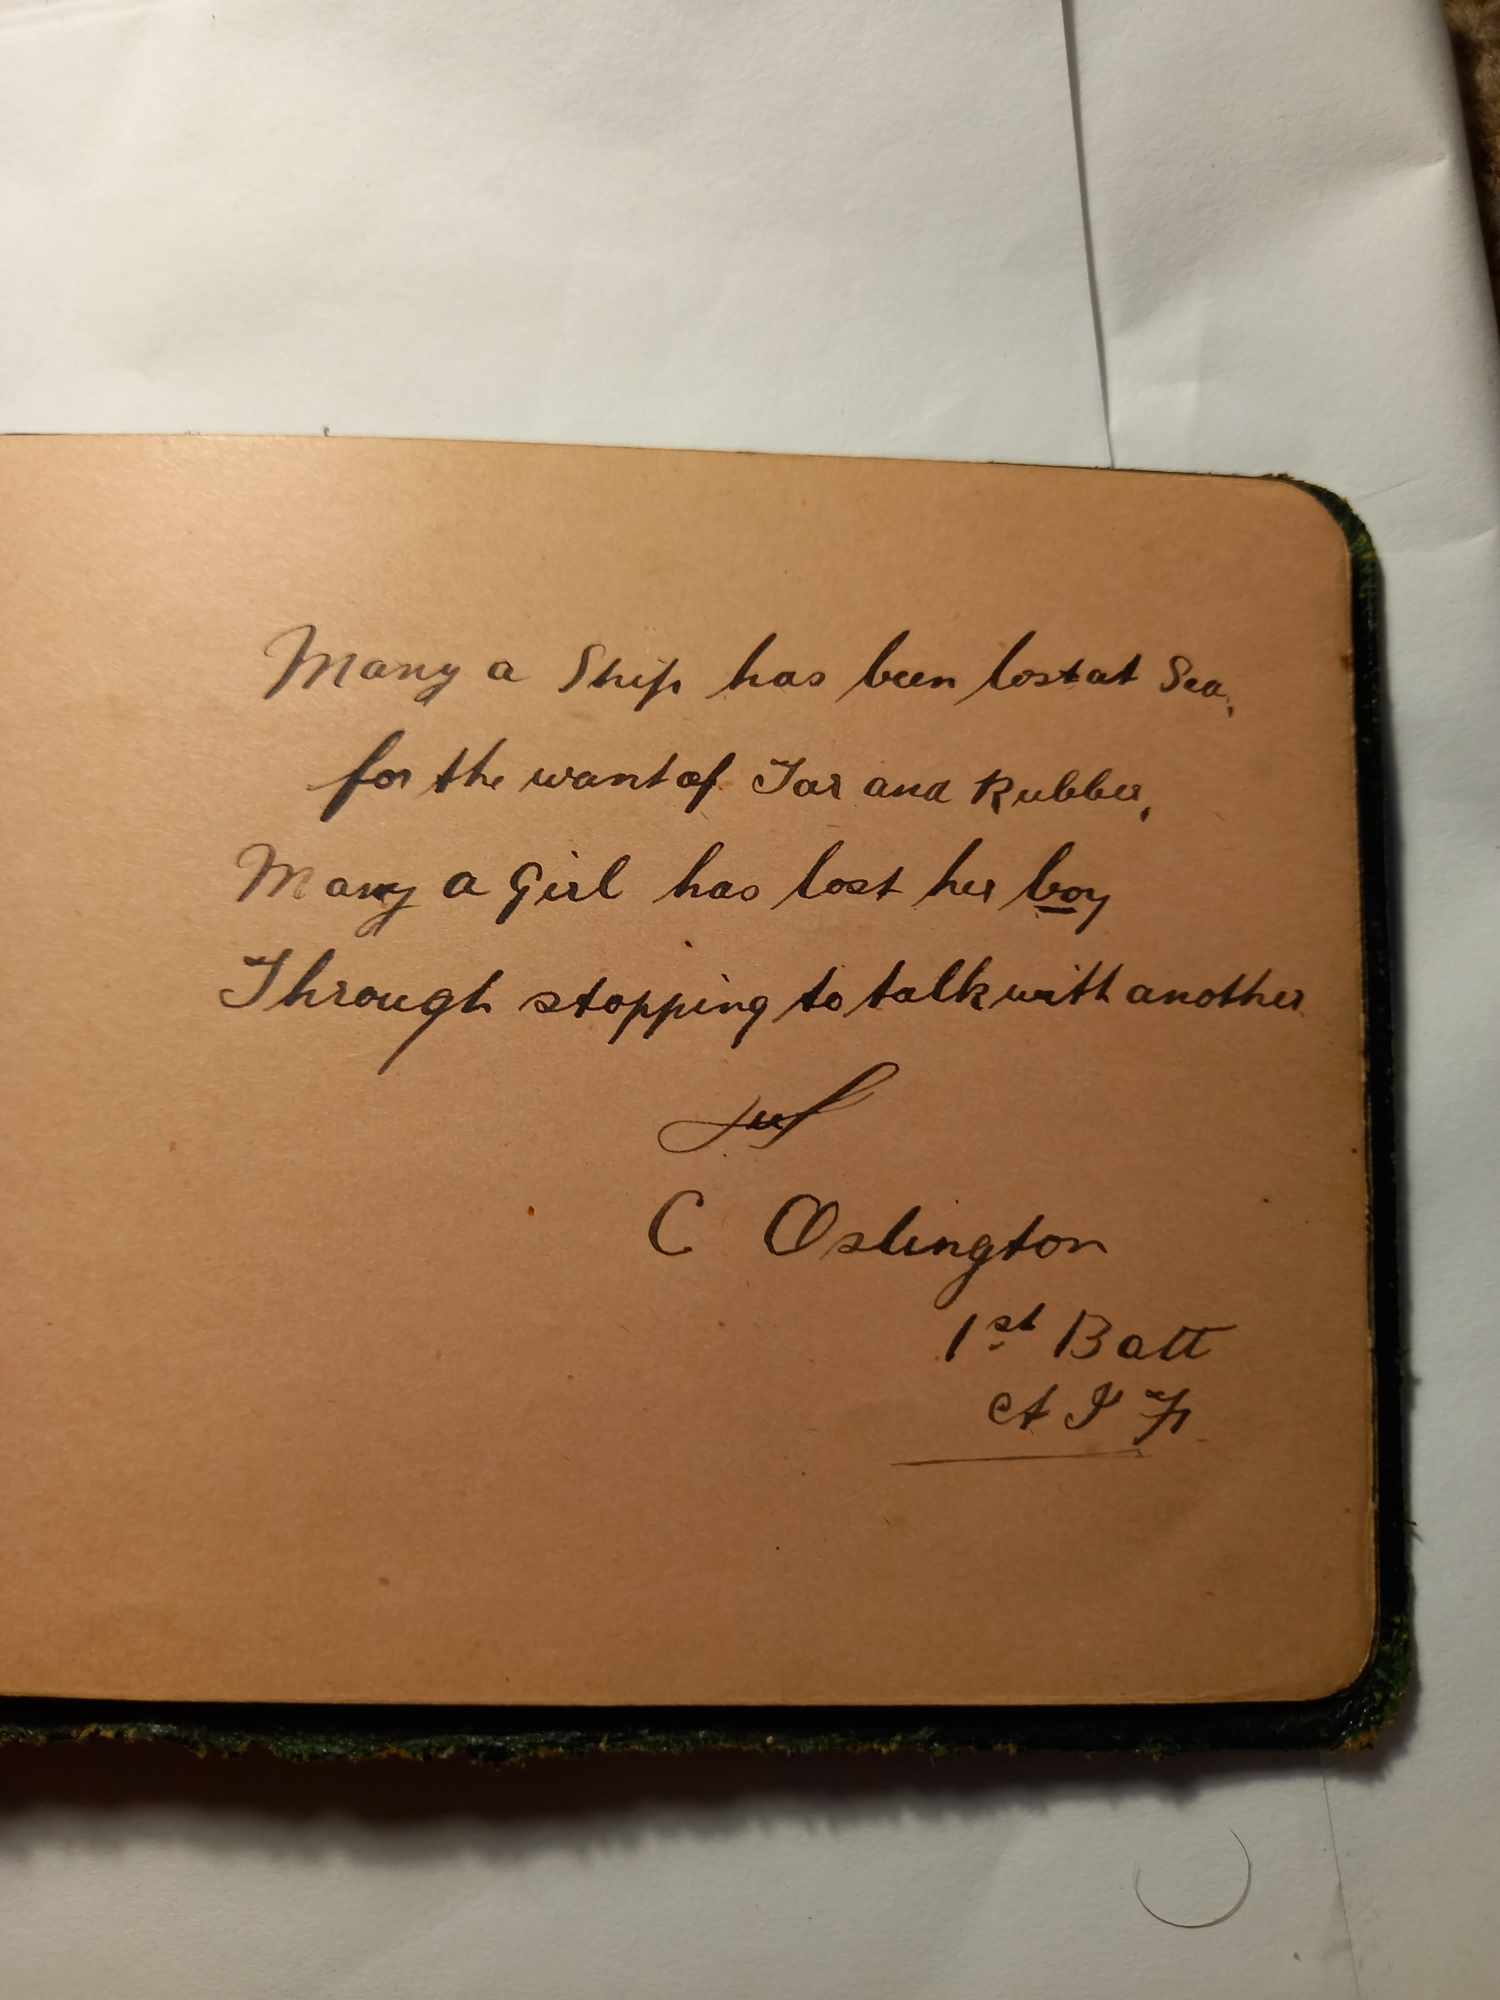 Many a Ship has been lost at Sea,
for the want of Tar and Rubber,
Many a Girl has lost her boy
Through stopping to talk with another
C Oslington
1st Batt
A I F